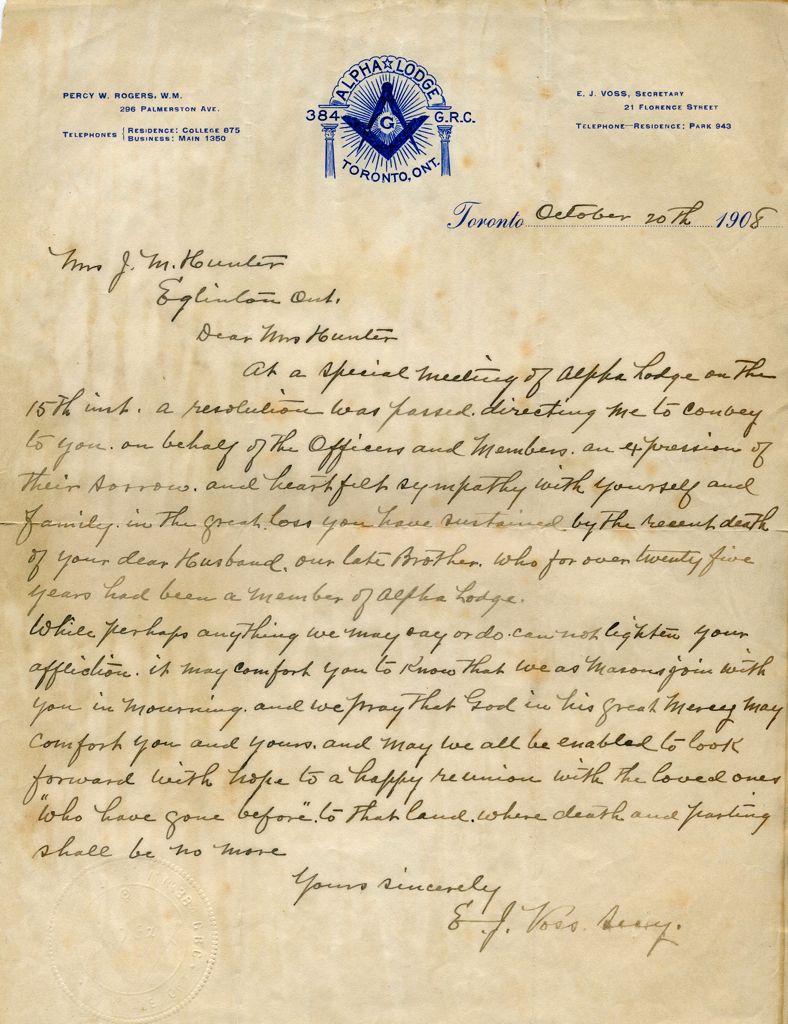 PERCY W. ROGERS, W.M.
296 PALMERSTON AVE.
TELEPHONES { RESIDENCE: COLLEGE 675
BUSINESS: MAIN 1350
ALPHA LODGE
384 G.R.C.
G
TORONTO, ONT.
E. J. VOSS, SECRETARY
21 FLORENCE STREET
TELEPHONE—RESIDENCE: PARK 943
Toronto October 20th 1908
Mrs J. M. Hunter
Eglinton Ont.
Dear Mrs Hunter
At a special meeting of Alpha Lodge on the
15th inst. a resolution was passed. directing me to convey
to you. on behalf of the Officers and Members. an expression of
their sorrow. and heartfelt sympathy with yourself and
family. in the great loss you have sustained by the recent death
of your dear Husband. our late Brother. who for over twenty five
years had been a member of Alpha Lodge.
While perhaps anything we may say or do. can not lighten your
affliction. it may comfort you to know that we as Masons join with
you in mourning. and we pray that God in his great Mercy may
comfort you and yours. and may we all be enabled to look
forward with hope to a happy reunion with the loved ones
"who have gone before". to that land. where death and parting
shall be no more
Yours sincerely
E. J. Voss. Secy.